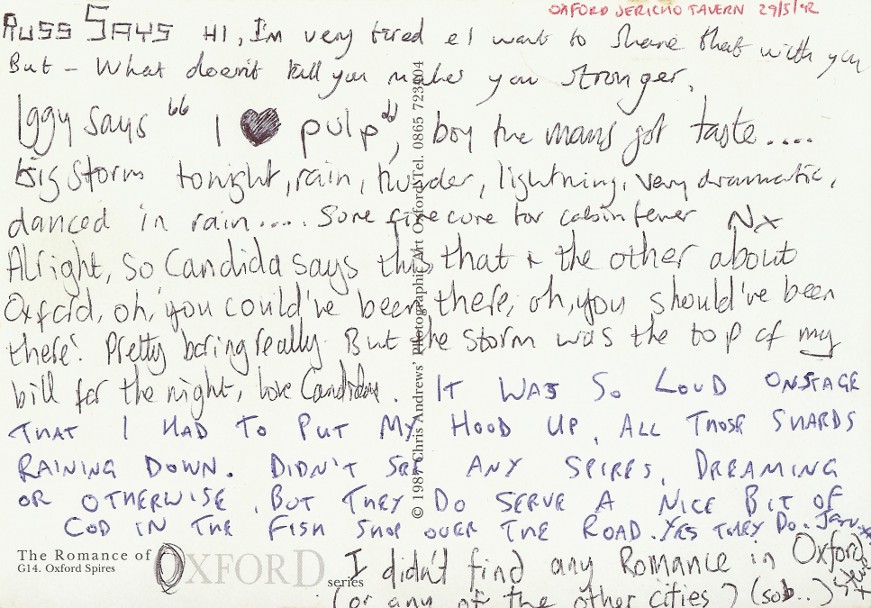 OXFORD JERICHO TAVERN 29/5/92
RUSS SAYS HI, I'm very tired & I want to share that with you
But - What doesn't kill you makes you stronger.
Iggy says "I ♥ pulp", boy the mans got taste....
big storm tonight, rain, thunder, lightning, very dramatic,
danced in rain.... Sure fire cure for cabin fever Nx
Alright, so Candida says this, that & the other about
Oxford, oh, 'you could've been there, oh, you should've been
there'. Pretty boring really. But the storm was the top of my
bill for the night, love Candida. IT WAS SO LOUD ONSTAGE
THAT I HAD TO PUT MY HOOD UP, ALL THOSE SHARDS
RAINING DOWN. DIDN'T SEE ANY SPIRES, DREAMING
OR OTHERWISE, BUT THEY DO SERVE A NICE BIT OF
COD IN THE FISH SHOP OVER THE ROAD. YES THEY DO.
I didn't find any Romance in Oxford
(or any of the other cities) (sob..)
The Romance of OXFORD series
G14. Oxford Spires
© 1987 Chris Andrews' Photographic Art Oxford Tel. 0865 723404